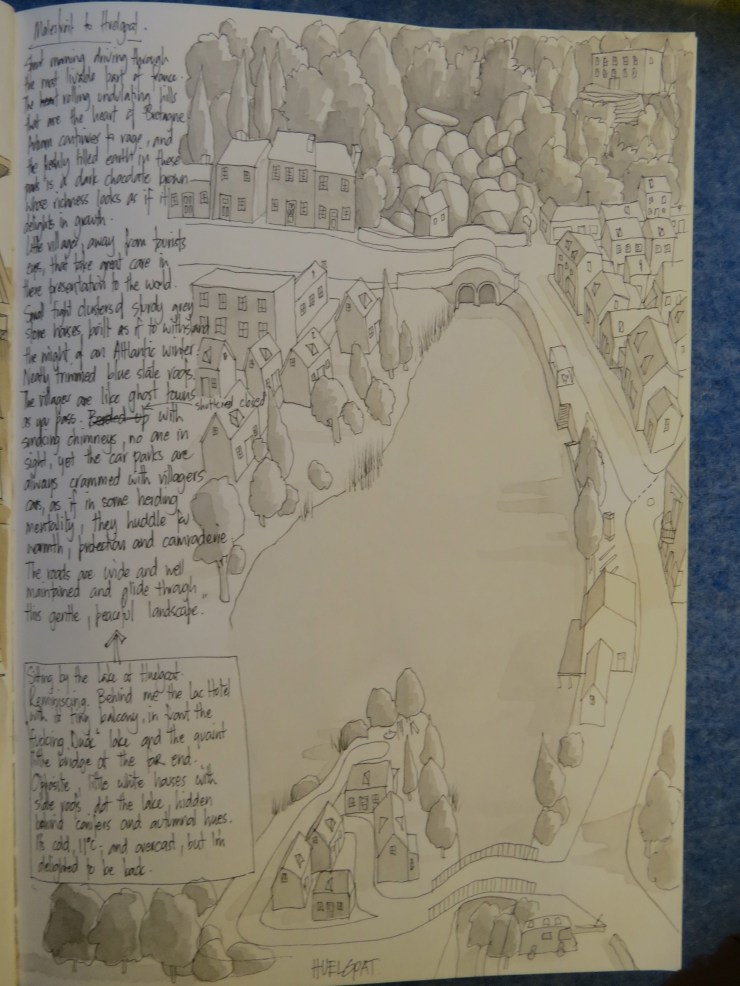 Malestroit to Huelgoat.
Good morning driving through
the most livable part of France.
The heart rolling undulating hills
that are the heart of Bretagne.
Autumn continues to rage, and
the freshly tilled earth in these
parts is a dark chocolate brown
whose richness looks as if it
delights in growth.
Little villages, away from tourists
eyes, that take great care in
there presentation to the world.
Small tight clusters of sturdy grey
stone houses, built as if to withstand
the might of an Altlantic winter.
Neatly trimmed blue slate roofs.
The villages are like ghost towns
shuttered closed
as you pass. Boarded up with
smoking chimneys, no one in
sight, yet the car parks are
always crammed with villagers
cars, as if in some herding
mentality, they huddle for
warmth, protection and camraderie.
The roads are wide and well
maintained and glide through
this gentle, peaceful landscape.
Siting by the lake at Huelgoat.
Reminiscing. Behind me the Lac Hotel
with is tiny balcony, in front the
lake and the quaint
little bridge at the far end.
Opposite, little white houses with
slate roofs dot the lake, hidden
behind conifers and autumnal hues.
It's cold, 11°C, and overcast, but I'm
delighted to be back.
HUELGOAT